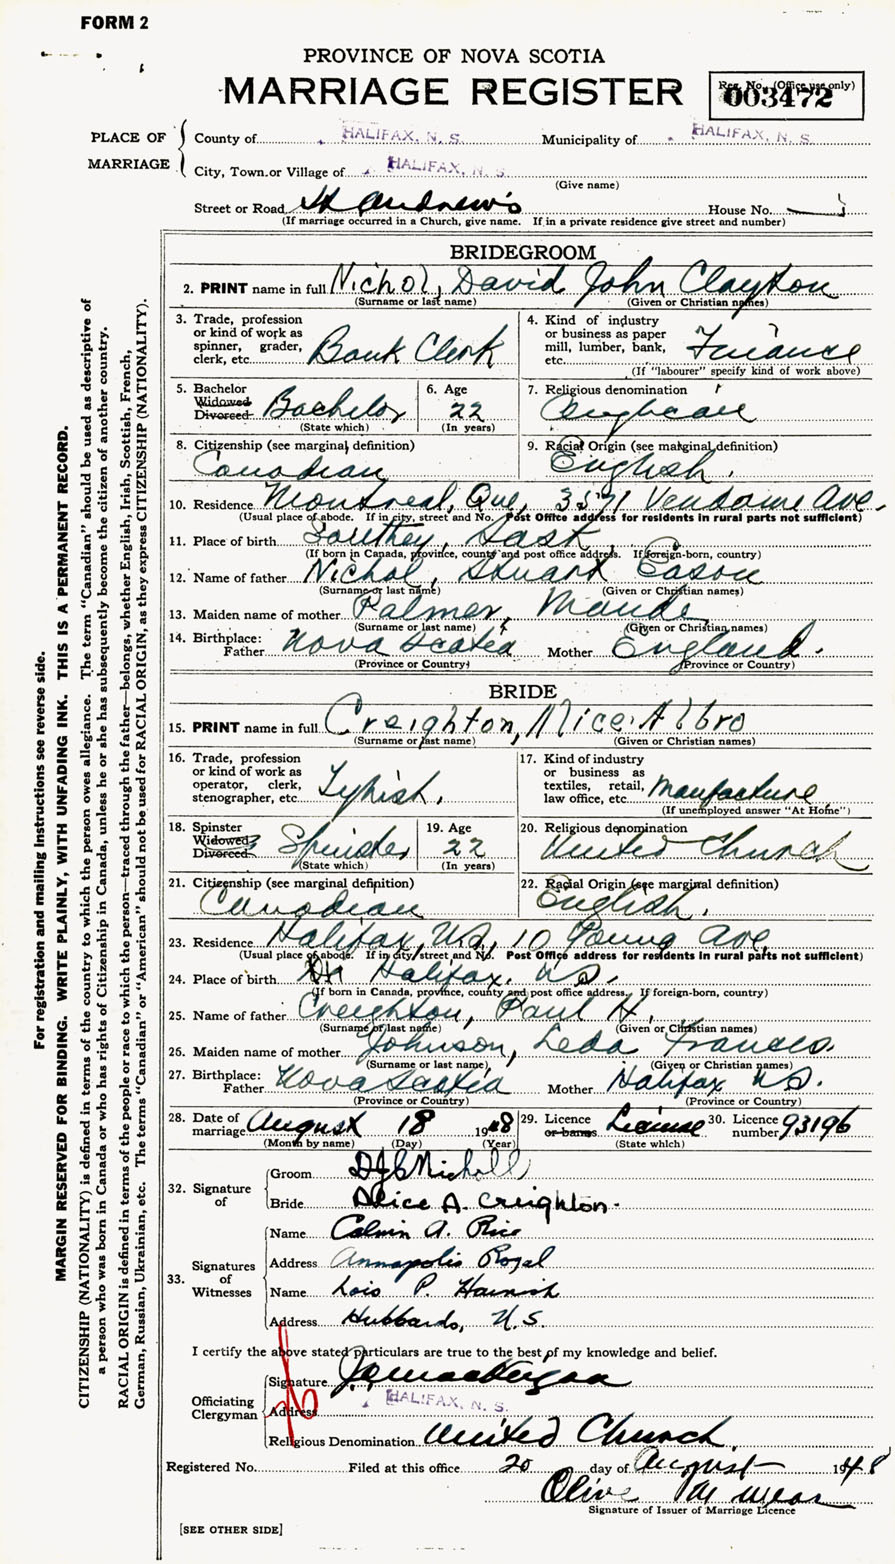 FORM 2
PROVINCE OF NOVA SCOTIA
MARRIAGE REGISTER
Reg. No. (Office use only)
003472
PLACE OF MARRIAGE
County of HALIFAX, N. S. Municipality of HALIFAX, N. S.
City, Town or Village of HALIFAX, N. S.
(Give name)
Street or Road St Andrew's House No.
(If marriage occurred in a Church, give name. If in a private residence give street and number)
BRIDEGROOM
2. PRINT name in full Nichol, David John Clayton
(Surname or last name) (Given or Christian names)
3. Trade, profession or kind of work as spinner, grader, clerk, etc. Bank Clerk
4. Kind of industry or business as paper mill, lumber, bank, etc. Finance
(If "labourer" specify kind of work above)
5. Bachelor Widowed Divorced Bachelor
(State which)
6. Age 22
(In years)
7. Religious denomination Anglican
8. Citizenship (see marginal definition) Canadian
9. Racial Origin (see marginal definition) English.
10. Residence Montreal, Que, 3571 Vendome Ave.
(Usual place of abode. If in city, street and No. Post Office address for residents in rural parts not sufficient)
11. Place of birth Southey, Sask.
(If born in Canada, province, county and post office address. If foreign-born, country)
12. Name of father Nichol, Stuart Eason
(Surname or last name) (Given or Christian names)
13. Maiden name of mother Palmer, Maude
(Surname or last name) (Given or Christian names)
14. Birthplace: Father Nova Scotia Mother England.
(Province or Country) (Province or Country)
BRIDE
15. PRINT name in full Creighton, Alice Albro
(Surname or last name) (Given or Christian names)
16. Trade, profession or kind of work as operator, clerk, stenographer, etc. Typist.
17. Kind of industry or business as textiles, retail, law office, etc. Manufacture
(If unemployed answer "At Home")
18. Spinster Widowed Divorced Spinster
(State which)
19. Age 22
(In years)
20. Religious denomination United Church
21. Citizenship (see marginal definition) Canadian
22. Racial Origin (see marginal definition) English.
23. Residence Halifax, N.S., 10 Young Ave,
(Usual place of abode. If in city, street and No. Post Office address for residents in rural parts not sufficient)
24. Place of birth Halifax, N.S.
(If born in Canada, province, county and post office address. If foreign-born, country)
25. Name of father Creighton, Paul H.
(Surname or last name) (Given or Christian names)
26. Maiden name of mother Johnson, Leda Frances.
(Surname or last name) (Given or Christian names)
27. Birthplace: Father Nova Scotia Mother Halifax N.S.
(Province or Country) (Province or Country)
28. Date of marriage August 18 1948
(Month by name) (Day) (Year)
29. Licence or banns License
(State which)
30. Licence number 93196
32. Signature of
Groom DJC Nicholl
Bride Alice A. Creighton.
33. Signatures of Witnesses
Name Calvin A. Rice
Address Annapolis Royal
Name Lois P. Harnish
Address Hubbards, N.S.
I certify the above stated particulars are true to the best of my knowledge and belief.
Officiating Clergyman
Signature
Address HALIFAX, N. S.
Religious Denomination United Church.
Registered No. Filed at this office 20 day of August 1948
Olive M Wear
Signature of Issuer of Marriage Licence
[SEE OTHER SIDE]
For registration and mailing instructions see reverse side.
MARGIN RESERVED FOR BINDING. WRITE PLAINLY, WITH UNFADING INK. THIS IS A PERMANENT RECORD.
CITIZENSHIP (NATIONALITY) is defined in terms of the country to which the person owes allegiance. The term "Canadian" should be used as descriptive of
a person who was born in Canada or who has rights of Citizenship in Canada, unless he or she has subsequently become the citizen of another country.
RACIAL ORIGIN is defined in terms of the people or race to which the person—traced through the father—belongs, whether English, Irish, Scottish, French,
German, Russian, Ukrainian, etc. The terms "Canadian" or "American" should not be used for RACIAL ORIGIN, as they express CITIZENSHIP (NATIONALITY).